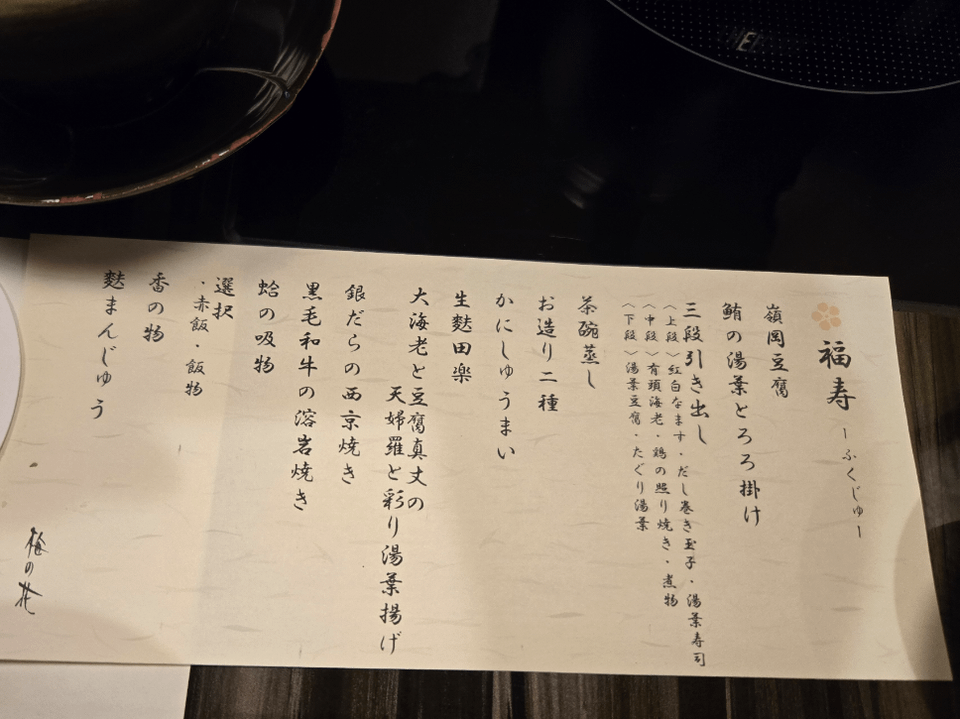 福寿 ーふくじゅー
嶺岡豆腐
鮪の湯葉とろろ掛け
三段引き出し
〈上段〉紅白なます・だし巻き玉子・湯葉寿司
〈中段〉有頭海老・鶏の照り焼き・煮物
〈下段〉湯葉豆腐・たぐり湯葉
茶碗蒸し
お造り二種
かにしゅうまい
生麩田楽
大海老と豆腐真丈の
天婦羅と彩り湯葉揚げ
銀だらの西京焼き
黒毛和牛の溶岩焼き
蛤の吸物
選択
・赤飯・飯物
香の物
麩まんじゅう
梅の花